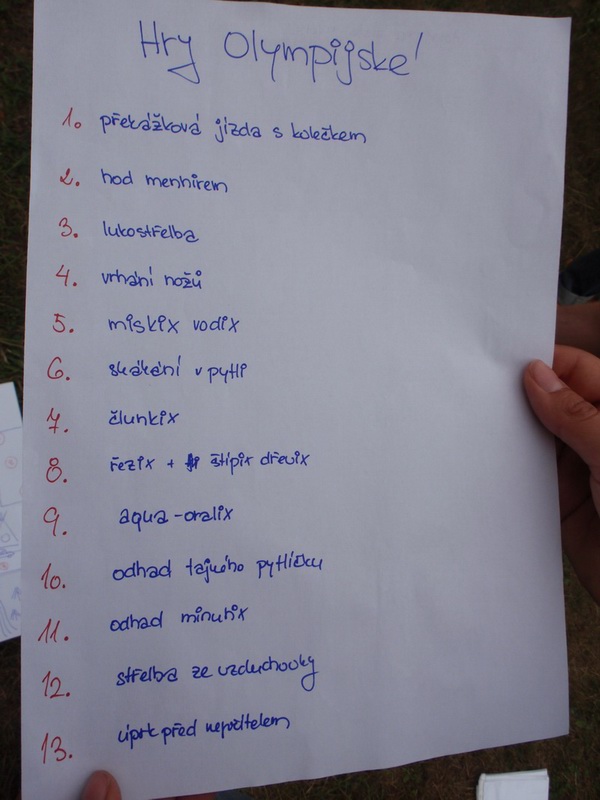 Hry Olympijské!
1. překážková jízda s kolečkem
2. hod menhirem
3. lukostřelba
4. vrhání nožů
5. miskix vodix
6. skákání v pytli
7. člunkix
8. řezix + štípix dřevix
9. aqua-oralix
10. odhad tajného pytlíčku
11. odhad minutix
12. střelba ze vzduchovky
13. úprk před nepřítelem